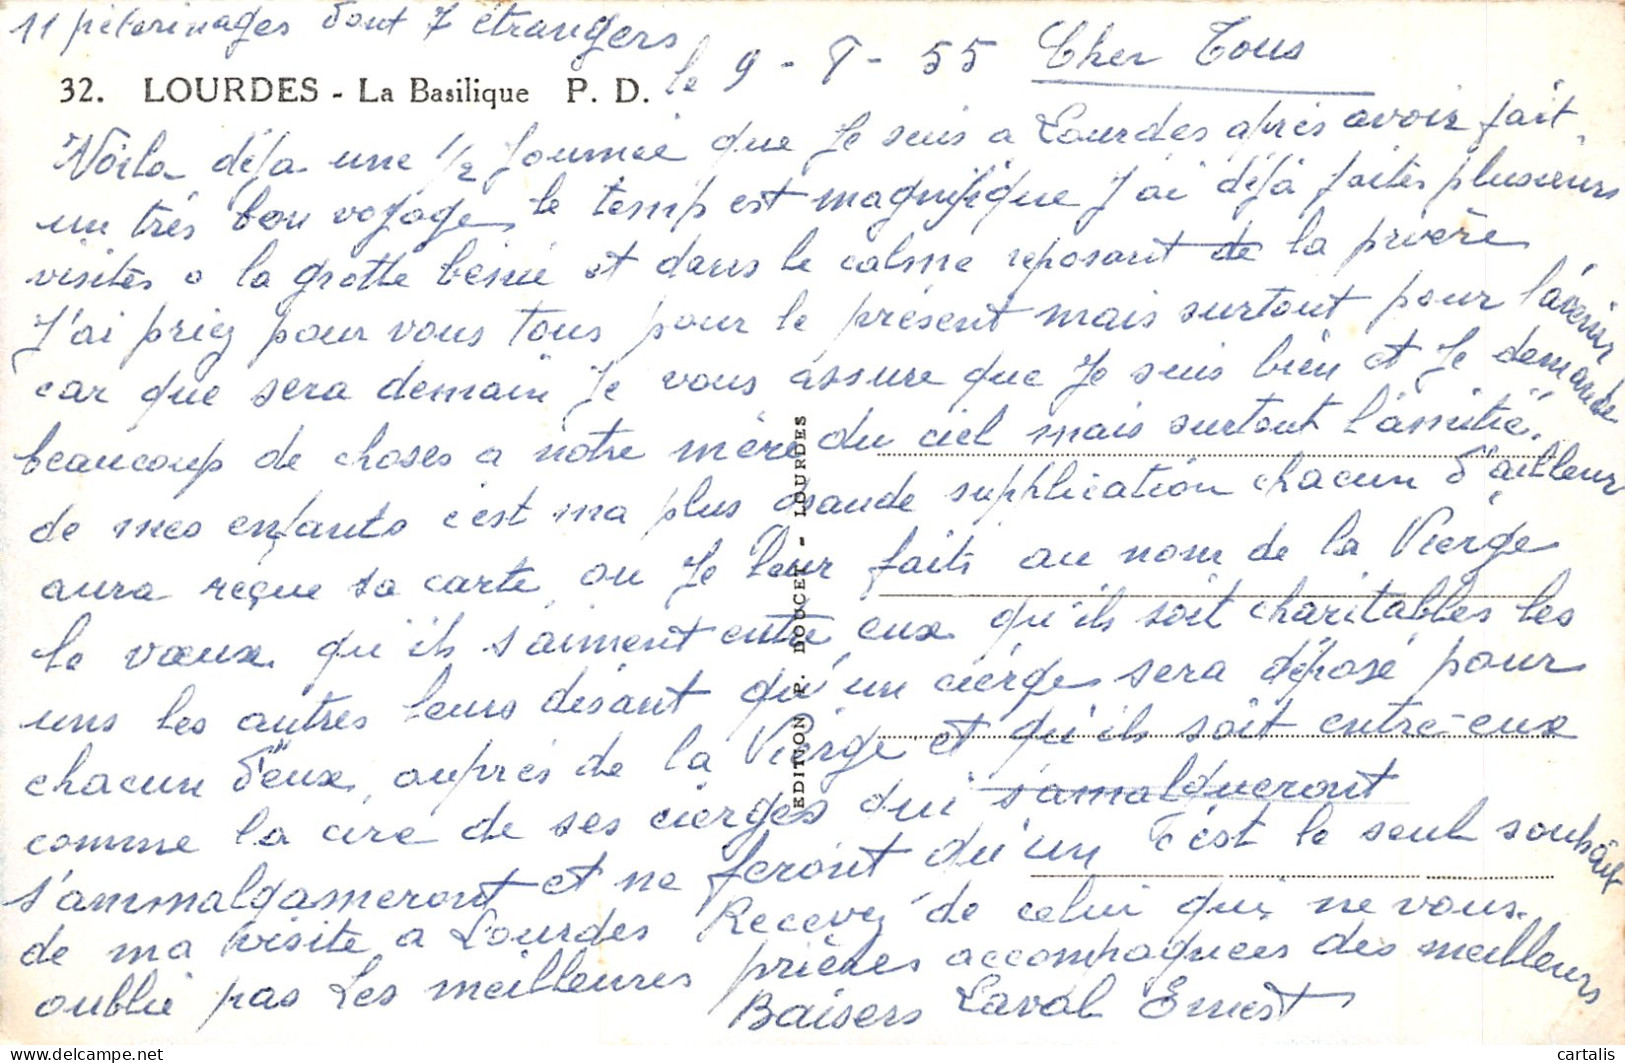 11 pèlerinages dont 7 étrangers
le 9 - 8 - 55 Cher Tous
32. LOURDES - La Basilique P. D.
Voila déja une 1/2 Journeé que Je suis a Lourdes aprés avoir fait
un trés bon voyage, le temps est magnifique J'ai déjà faites plusieurs
visites a la grotte benie et dans le calme reposant de la prière
J'ai priez pour vous tous pour le présent mais surtout pour l'avenir
car que sera demain Je vous assure que Je suis bien et Je demande
beaucoup de choses a notre mère du ciel mais surtout l'amitié
de mes enfants c'est ma plus grande supplication chacun d'ailleur
aura reçue sa carte ou Je leur faits au nom de la Vierge
le vœux qu'ils s'aiment entre eux qu'ils soit charitables les
uns les autres leurs disant qu'un cierge sera déposé pour
chacun d'eux auprés de la Vierge et qu'ils soit entre-eux
comme la cire de ses cierges qui s'amalgueront
s'ammalgameront et ne feront qu'un c'est le seul souhait
de ma visite a Lourdes Recevez de celui qui ne vous
oublie pas Les meilleures prières accompagnees des meilleurs
Baisers Laval Ernest
EDITION P. DOUCET - LOURDES
cartalis
delcampe.net